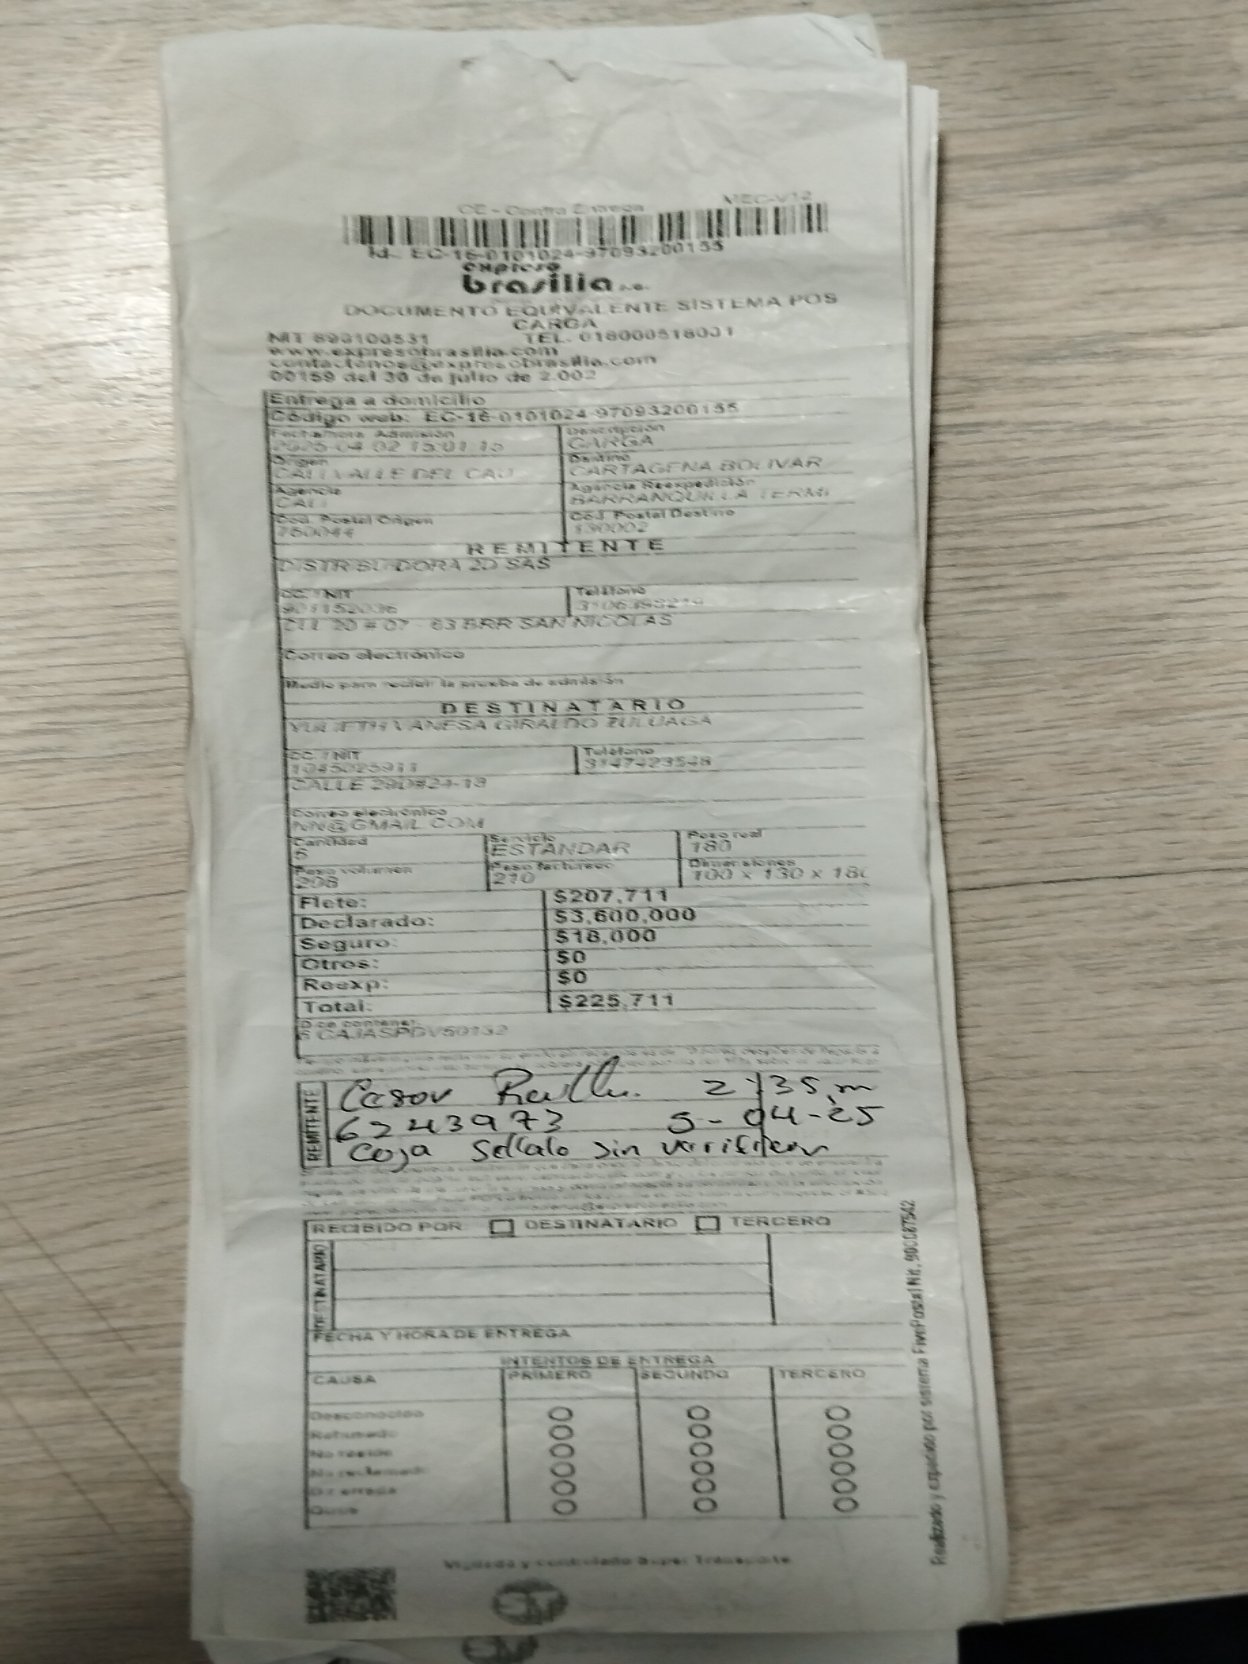 CE - Contra Entrega MEC-V12
Id.. EC-16-0101024-97093200155
expreso
brasilia s.a.
DOCUMENTO EQUIVALENTE SISTEMA POS
CARGA
NIT 890100531 TEL. 018000518001
www.expresobrasilia.com
contactenos@expresobrasilia.com
00159 del 30 de julio de 2.002
Entrega a domicilio
Código web: EC-16-0101024-97093200155
Fecha/hora Admisión Descripción
2025-04-02 15:01:15 CARGA
Origen Destino
CALI VALLE DEL CAU CARTAGENA BOLIVAR
Agencia Agencia Reexpedición
CALI BARRANQUILLA TERMI
Cod. Postal Origen Cod. Postal Destino
760044 130002
REMITENTE
DISTRIBUIDORA 2D SAS
CC. / NIT Teléfono
CLL 20 # 07 - 63 BRR SAN NICOLAS
Correo electrónico
Medio para recibir la prueba de admisión
DESTINATARIO
YULIETH VANESA GIRALDO ZULUAGA
CC. / NIT Teléfono
1045025911 3147423548
CALLE 29D#24-19
Correo electrónico
NN@GMAIL.COM
Cantidad Servicio Peso real
6 ESTANDAR 180
Peso volumen Peso facturado Dimensiones
208 210 100 x 130 x 180
Flete: $207,711
Declarado: $3,600,000
Seguro: $18,000
Otros: $0
Reexp: $0
Total: $225,711
Dice contener
6 CAJASPDV50132
REMITENTE
2:35 m
6243973 5-04-25
Caja Sellala sin verificar
RECIBIDO POR DESTINATARIO TERCERO
DESTINATARIO
FECHA Y HORA DE ENTREGA
INTENTOS DE ENTREGA
CAUSA PRIMERO SEGUNDO TERCERO
Desconocido
Rehusado
No reside
No reclamado
Dir errada
Otros
Vigilado y controlado Super Transporte
Realizado y expedido por sistema FivePostal Nit. 900087542